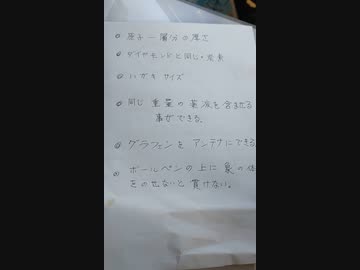 原子一層分の厚さ
ダイヤモンドと同じ炭素
ハガキサイズ
同じ重量の薬液を含ませる
事ができる。
グラフェンをアンテナにできる
ボールペンの上に象の体
をのせないと貫けない。